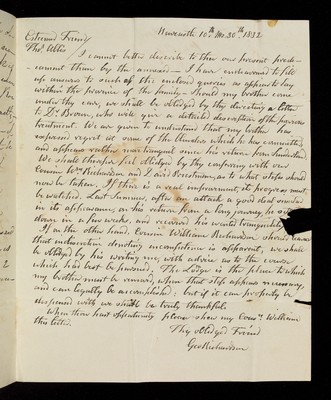 Newcastle 10th Mo. 30th 1832
Esteemed Friend
Thos. Allis
I cannot better describe to thee our present predi-
cament than by the annexed — I have endeavoured to fill
up answers to such of the enclosed queries as appear to lay
within the province of the family — should my brother come
under thy care, we shall be obliged by thy directing a letter
to Dr. Brown, who will give a detailed description of the previous
treatment. We are given to understand that my brother has
expressed regret at some of the blunders which he has committed,
and appears rather more tranquil since his return from Sunderland
We should therefore feel obliged by thy conferring with our
Cousins Wm Richardson and David Priestman, as to what steps should
now be taken. If there is a real improvement, its progress must
be watched. Last Summer, after an attack a good deal similar
in its appearance, on his return from a long journey, he
down in a few weeks, and recovered his wonted tranquility
If on the other hand, Cousin William Richardson, should learn
that indiscretion denoting incompetence is apparent, we shall
be obliged by his writing me, with advice as to the course
which had best be pursued; The Lodge is the place to which
my brother must be removed, when that step appears necessary,
and can legally be accomplished; but if it can properly be
dispensed with we shall be truly thankful.
When thou hast opportunity please show my Cousn. William
this letter.
Thy obliged Friend
Geo Richardson